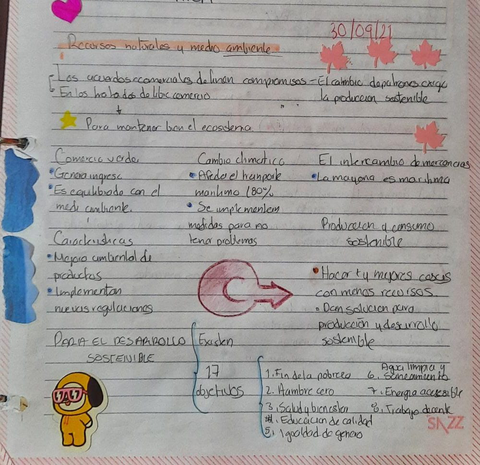 30/09/21
Recursos naturales y medio ambiente
Los acuerdos comerciales definen compromisos - El cambio de patrones
En los tratados de libre comercio
la produccion sostenible
Para mantener bien el ecosistema
Comercio verde
Genera ingreso
Es equilibrado con el
medi ambiente.
Caracteristicas
Mejora ambiental de
productos
Implementan
nuevas regulaciones
Cambio climatico
Afecta el transporte
maritimo (80%
Se implementem
medidas para no
tener problemas
El intercambio de mercancias
La mayoria es maritima
Produccion y consumo
sostenible
Hacer + y mejores cosas
con menos recursos
Dan solucion para
produccion y desarrollo
sostenible
PARA EL DESARROLLO
SOSTENIBLE
Existen
17
objetivos
1. Fin de la pobreza
2. Hambre cero
3. Salud y bienestar
4. Educacion de calidad
5. Igualdad de genero
6. Agua limpia y
saneamiento
7. Energia accesible
8. Trabajo decente
SAZZ